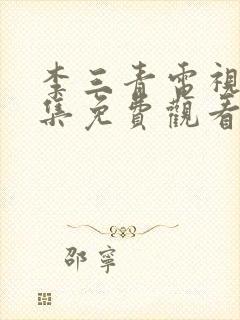 李三青電視
集免費觀看
邵寧